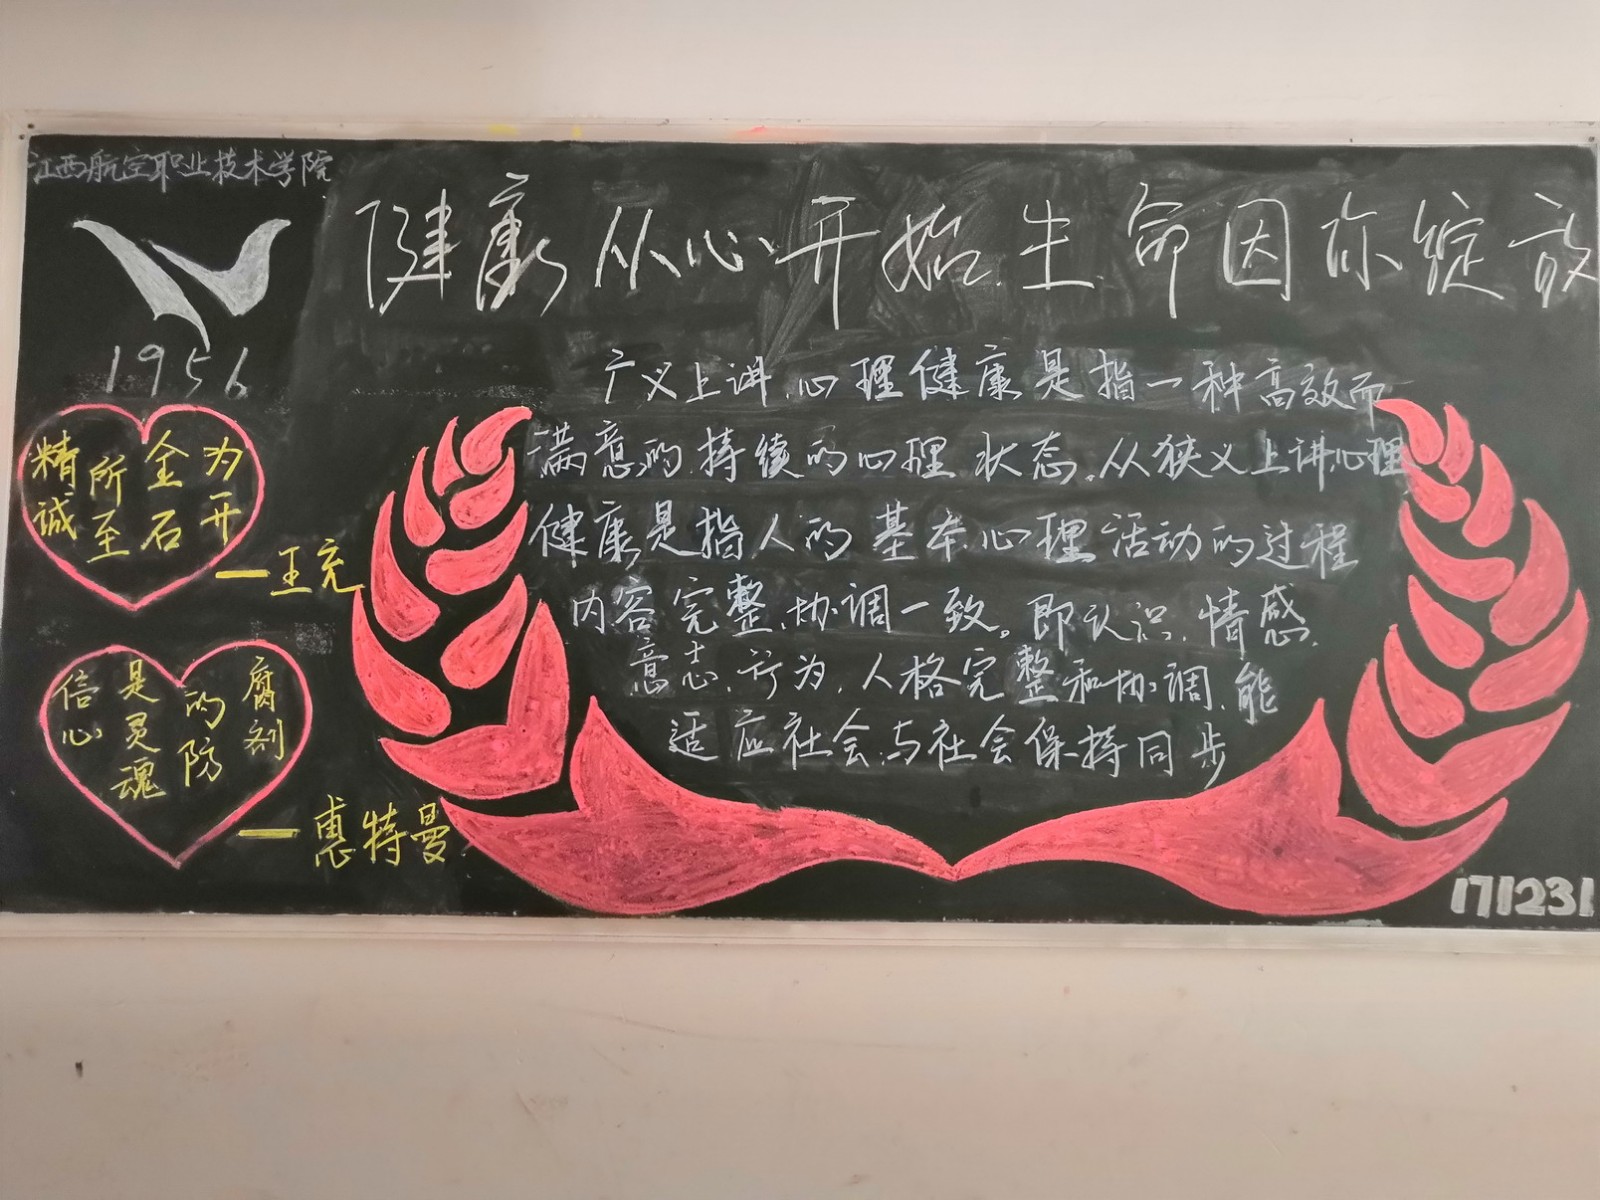 江西航空职业技术学院
健康从心开始生命因你绽放
1956
精诚所至金石为开
—王充
信心是灵魂的防腐剂
—惠特曼
广义上讲,心理健康是指一种高效而
满意的,持续的心理状态。从狭义上讲,心理
健康是指人的基本心理活动的过程
内容完整,协调一致。即认识,情感,
意志,行为,人格完整和协调,能
适应社会,与社会保持同步
171231